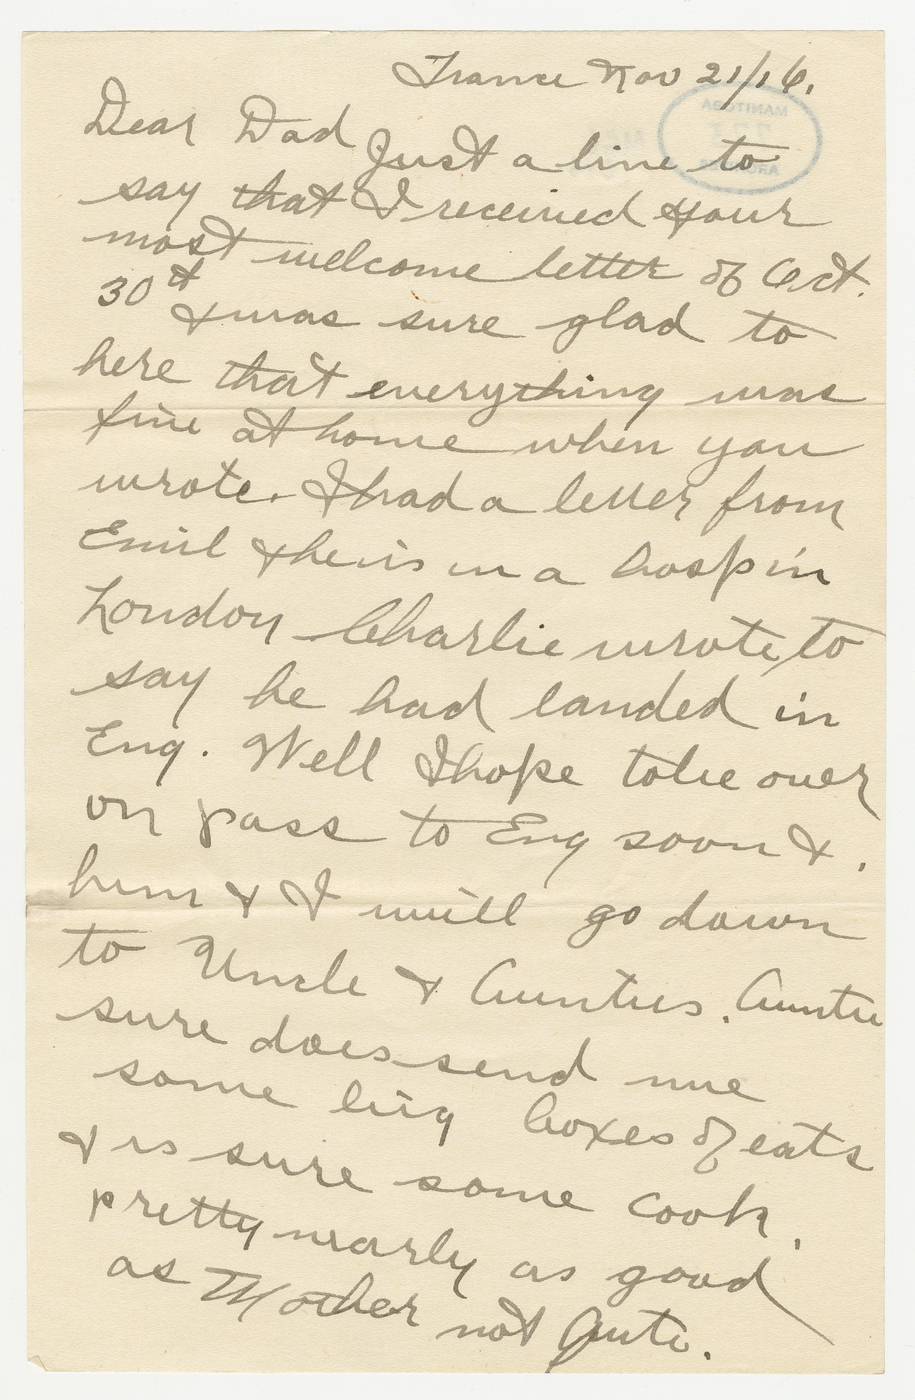 France Nov 21/16.
Dear Dad
Just a line to
say that I received your
most welcome letter of Oct.
30th
& was sure glad to
here that everything was
fine at home when you
wrote. I had a letter from
Emil & he is in a hosp in
London Charlie wrote to
say he had landed in
Eng. Well I hope to be over
on pass to Eng soon &.
him & I will go down
to Uncle & Aunties. Auntie
sure does send me
some big boxes of eats
& is sure some cook.
pretty nearly as good
as Mother not quite.
MANITOBA